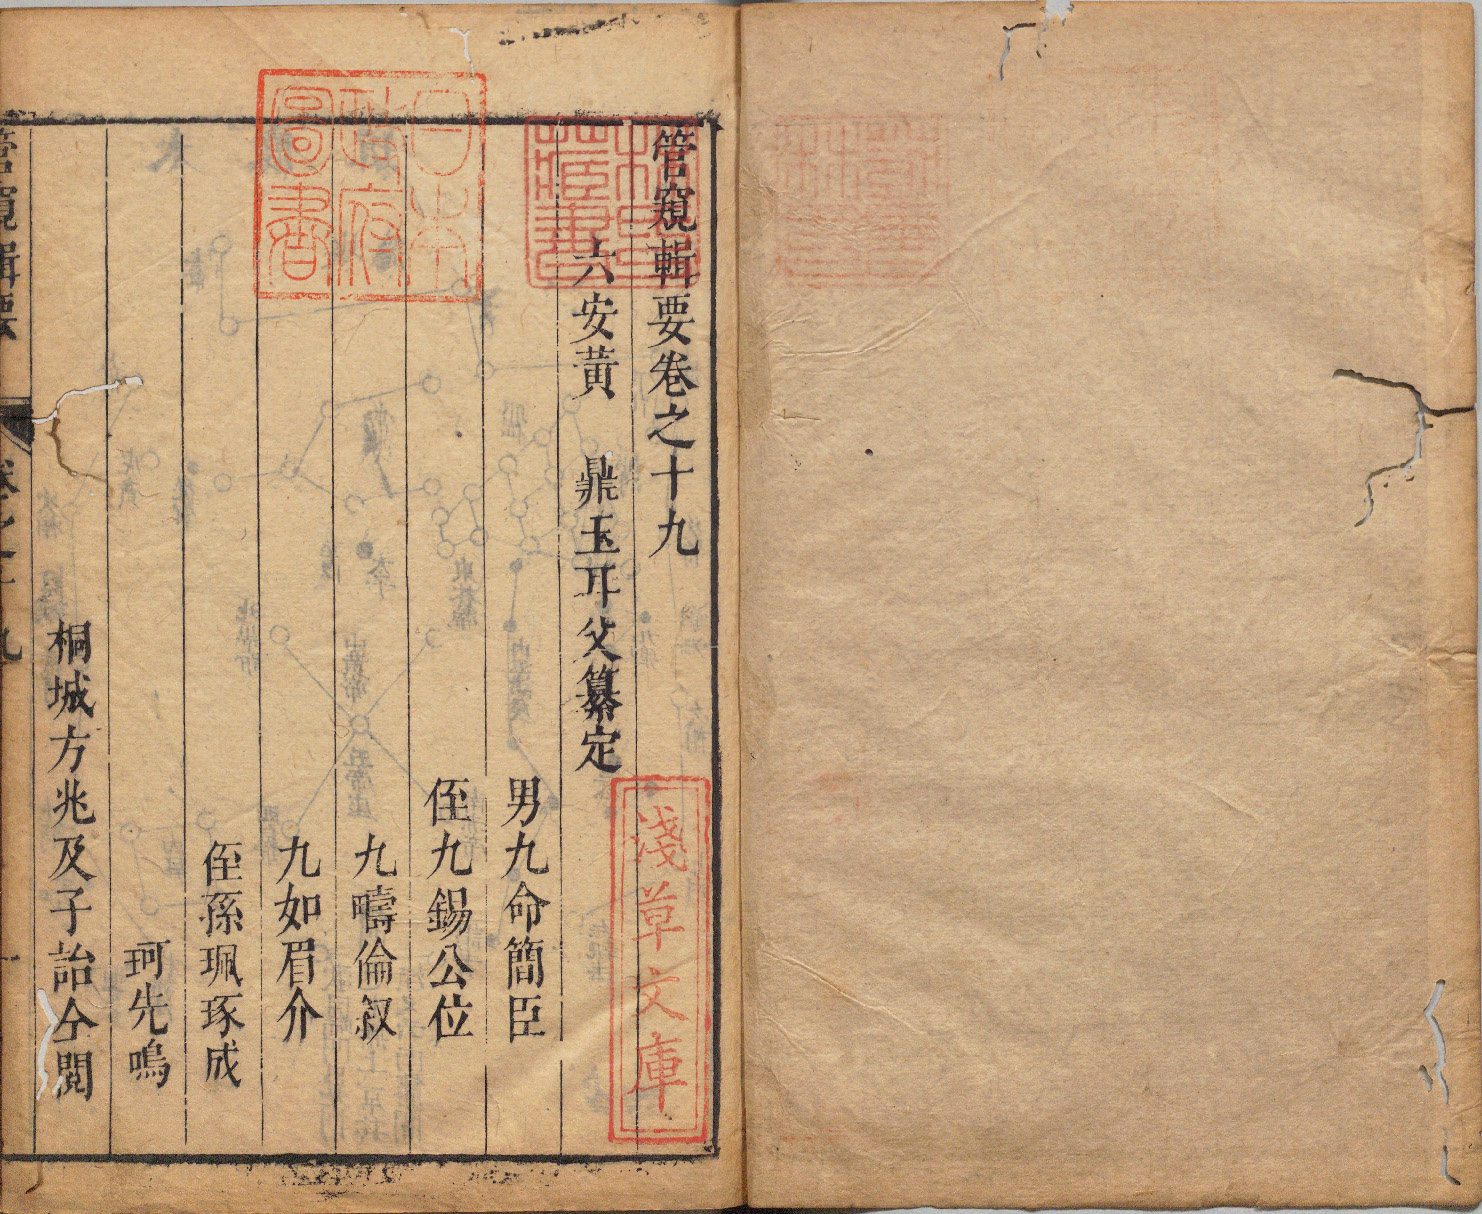 管窺輯要卷之十九
六安黃　鼎玉耳父纂定
男九命簡臣
侄九錫公位
九疇倫叙
九如眉介
侄孫珮琢成
珂先鳴
桐城方兆及子詒仝閱
管窺輯要
卷之十九
一
日本
政府
圖書
林氏
藏書
淺草文庫